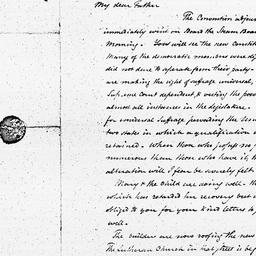 My dear Father
The Convention adjour
immediately went on Board the Steam Boat
Morning. You will see the new Constit
Many of the democratic members were dis
did not dare to separate from their party-
are making the right of suffrage universal,
Supreme Court dependent & vesting the pow
almost all instances in the legislature.
for universal suffrage
two states in which a qualification
retained. Where those who
numerous than those who have it, th
alteration will I fear be severely felt
Mary & the child are doing well- th
which has retarded her recovery but
obliged to you for your kind letters
well-
The builders are now roofing the new
The Lutheran Church in